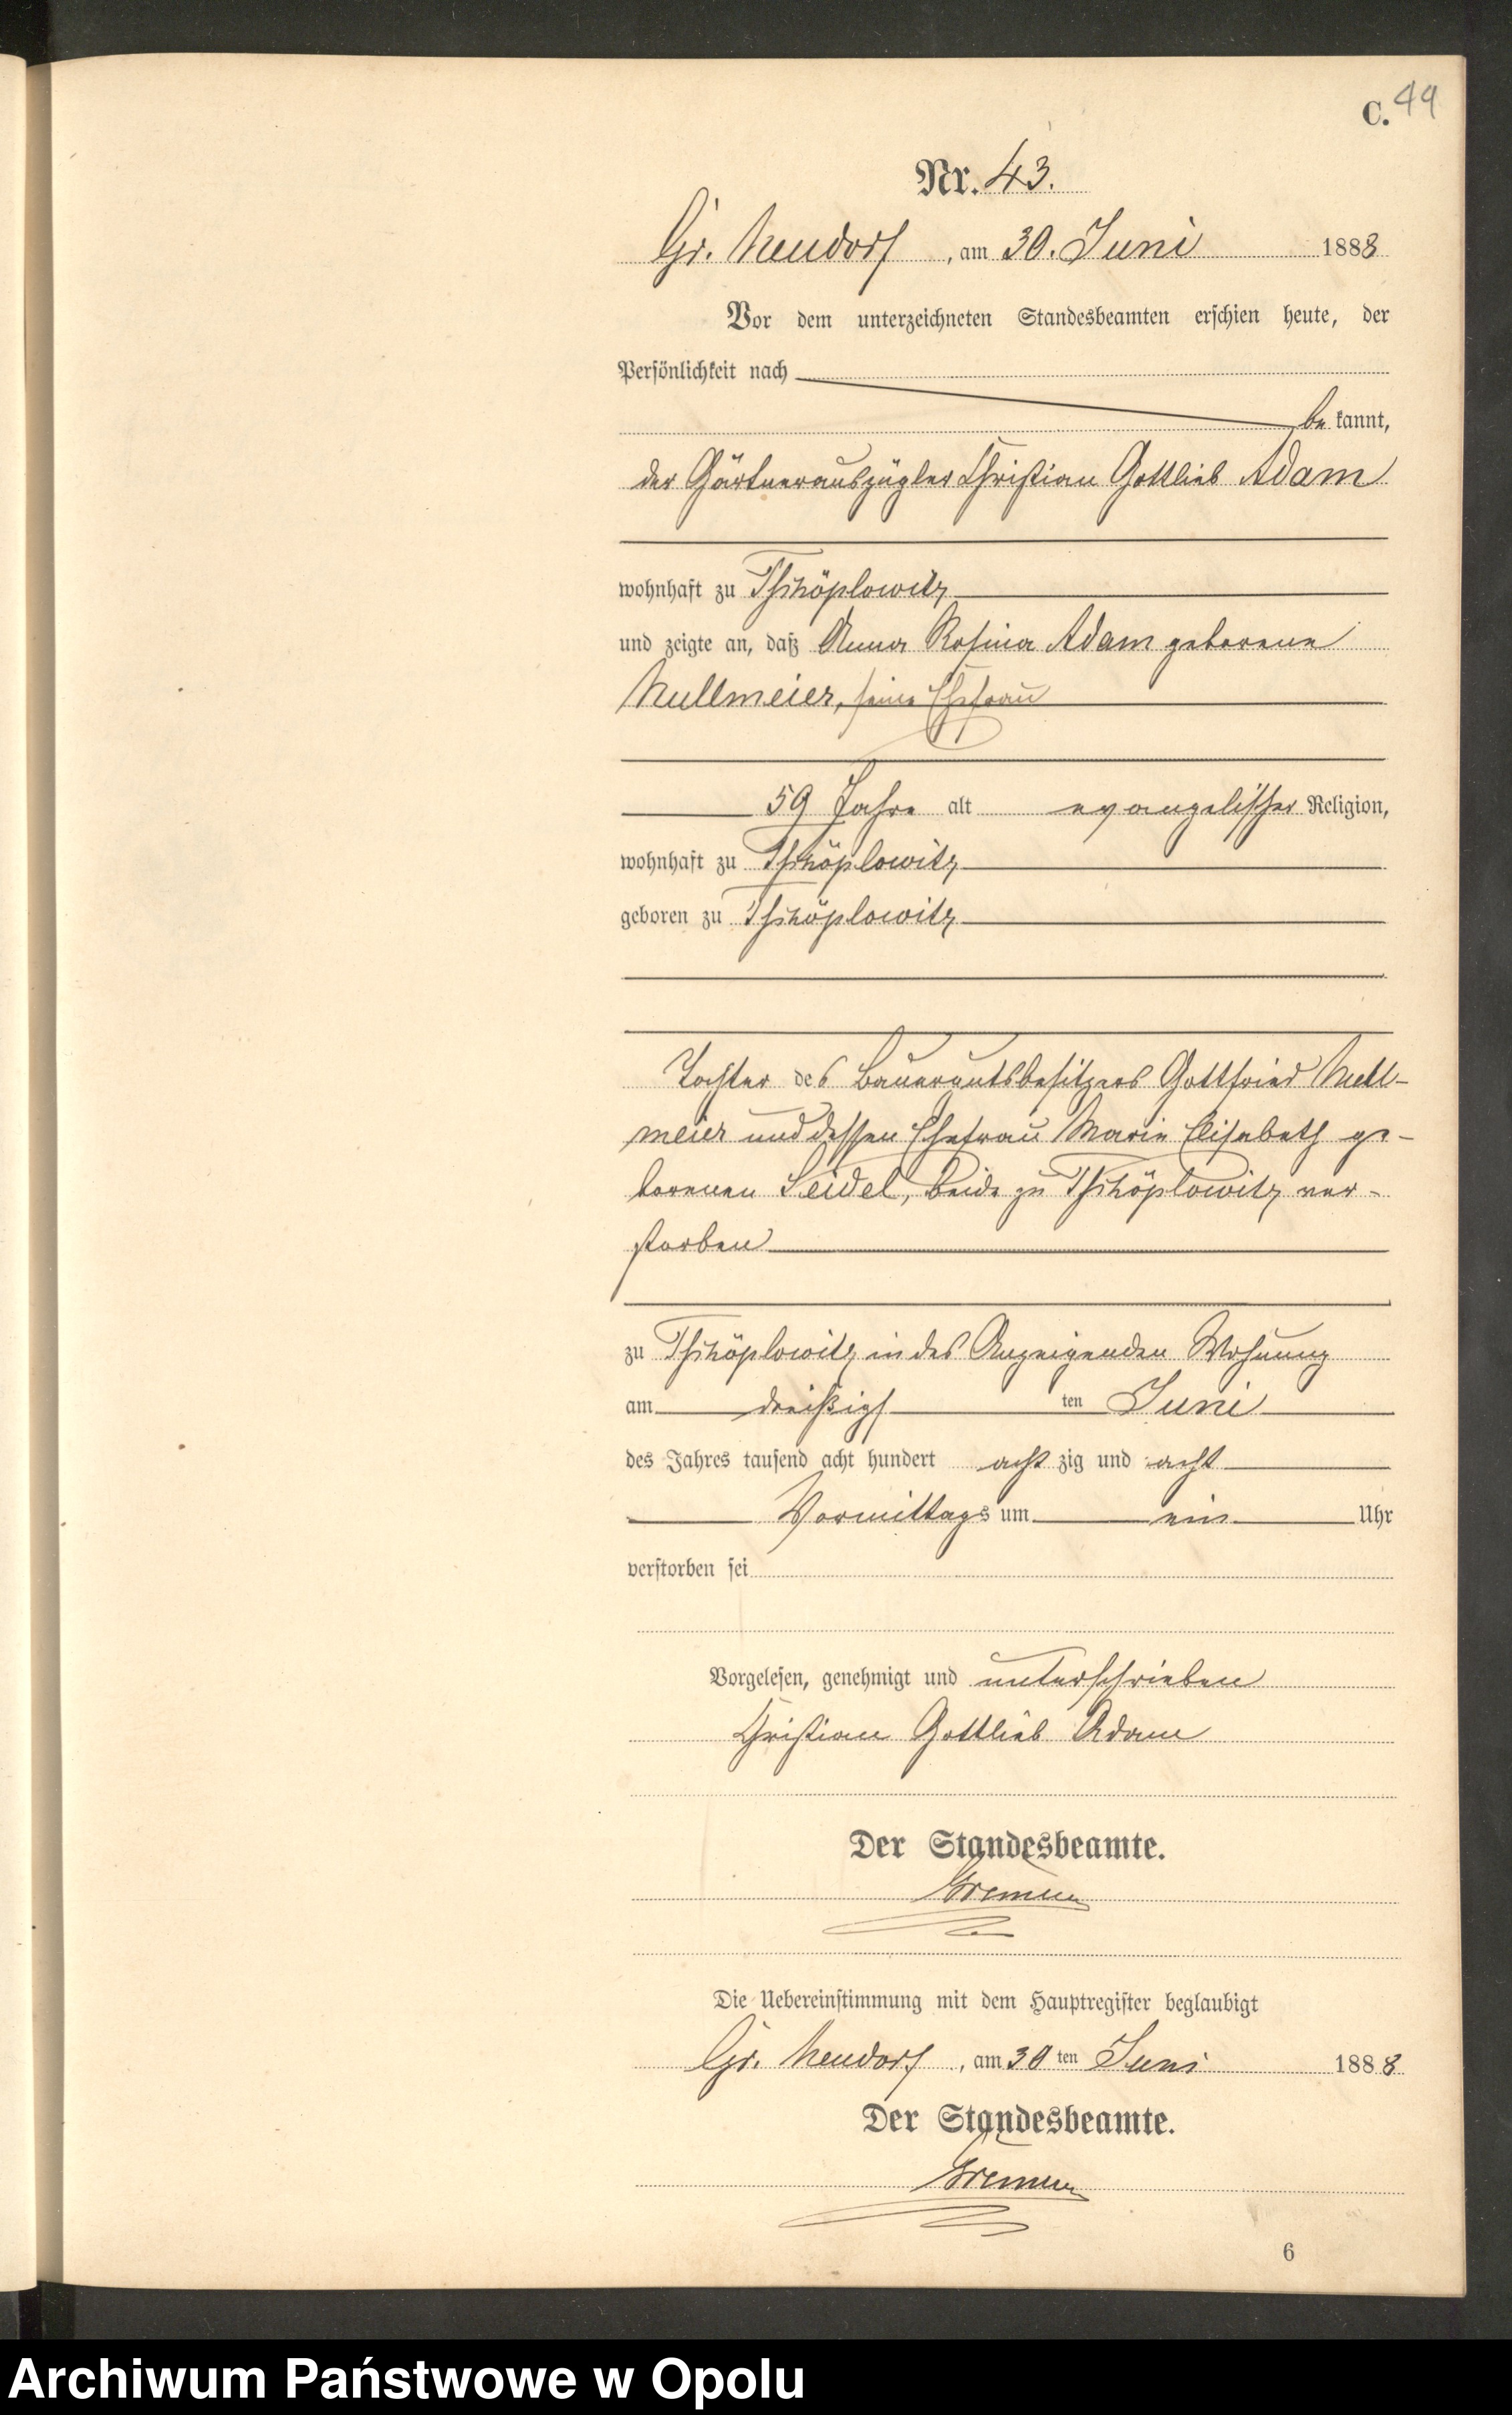 C. 49
Nr. 43.
Gr. Neudorf, am 30. Juni 1888
Vor dem unterzeichneten Standesbeamten erschien heute, der
Persönlichkeit nach
be kannt,
der Gärtnerauszügler Christian Gottlieb Adam
wohnhaft zu Tschöplowitz
und zeigte an, daß Anna Rosina Adam geborene
Nullmeier, seine Ehefrau
59 Jahre alt evangelischer Religion,
wohnhaft zu Tschöplowitz
geboren zu Tschöplowitz
Tochter des Bauergutsbesitzers Gottfried Null-
meier und dessen Ehefrau Marie Elisabeth ge-
borenen Seidel, beide zu Tschöplowitz ver-
storben
zu Tschöplowitz in des Anzeigenden Wohnung
am dreißigs ten Juni
des Jahres tausend acht hundert acht zig und acht
Vormittags um ein Uhr
verstorben sei
Vorgelesen, genehmigt und unterschrieben
Christian Gottlieb Adam
Der Standesbeamte.
Die Uebereinstimmung mit dem Hauptregister beglaubigt
Gr. Neudorf, am 30 ten Juni 1888
Der Standesbeamte.
6
Archiwum Państwowe w Opolu